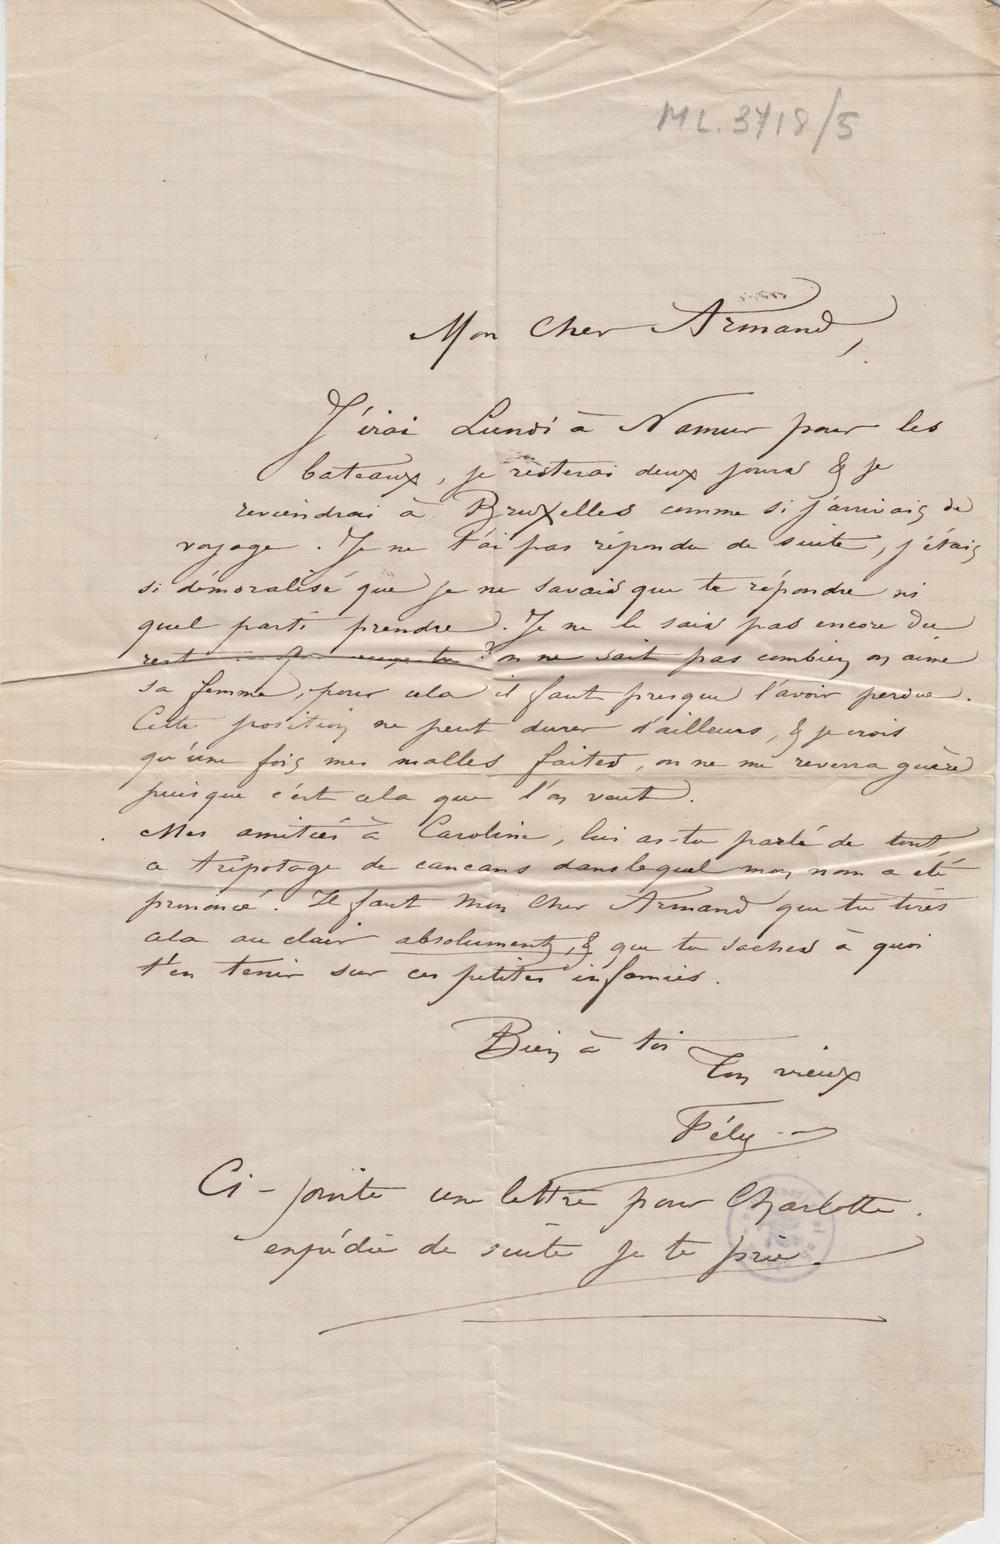 ML. 3718/5
Mon Cher Armand,
J'irai Lundi à Namur pour les
bateaux, je resterai deux jours & je
reviendrai à Bruxelles comme si j'arrivais de
voyage. Je ne t'ai pas répondu de suite, j'étais
si démoralisé que je ne savais que te répondre ni
quel parti prendre. Je ne le sais pas encore du
rest on ne sait pas combien on aime
sa femme, pour cela il faut presque l'avoir perdue.
Cette position ne peut durer d'ailleurs, & je crois
qu'une fois mes malles faites, on ne me reverra guère
puisque c'est cela que l'on veut.
Mes amitiés à Caroline, lui as-tu parlé de tout
ce tripotage de cancans dans lequel mon nom a été
prononcé. Il faut Mon Cher Armand que tu tires
cela au clair absolument, & que tu saches à quoi
t'en tenir sur ces petites infamies.
Bien à toi
Ton vieux
Fély
Ci-jointe une lettre pour Charlotte.
expédie de suite je te prie.